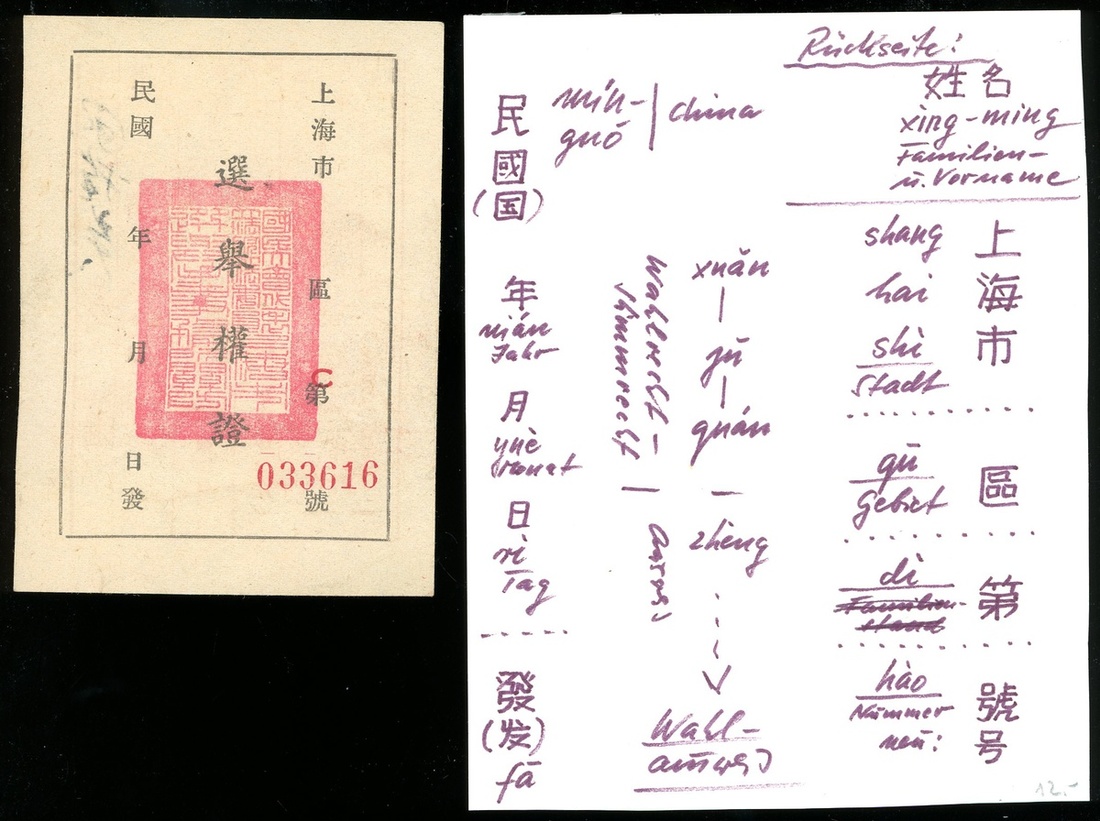 上海市
區
C
第
033616
號
選舉權證
民國
年
月
日
發
Rückseite:
姓名
xìng-míng
Familien-
u. Vorname
上海市
shang
hai
shì
Stadt
區
qū
Gebiet
第
dì
號
号
hào
Nummer
neu:
xuǎn
jǔ
quán
zhèng
Wahlrecht-
Stimmrecht
Ausweis
Wahl-
ausweis
民國
(国)
mín-
guó
China
年
nián
Jahr
月
yuè
Monat
日
rì
Tag
發
(发)
fā
12.-